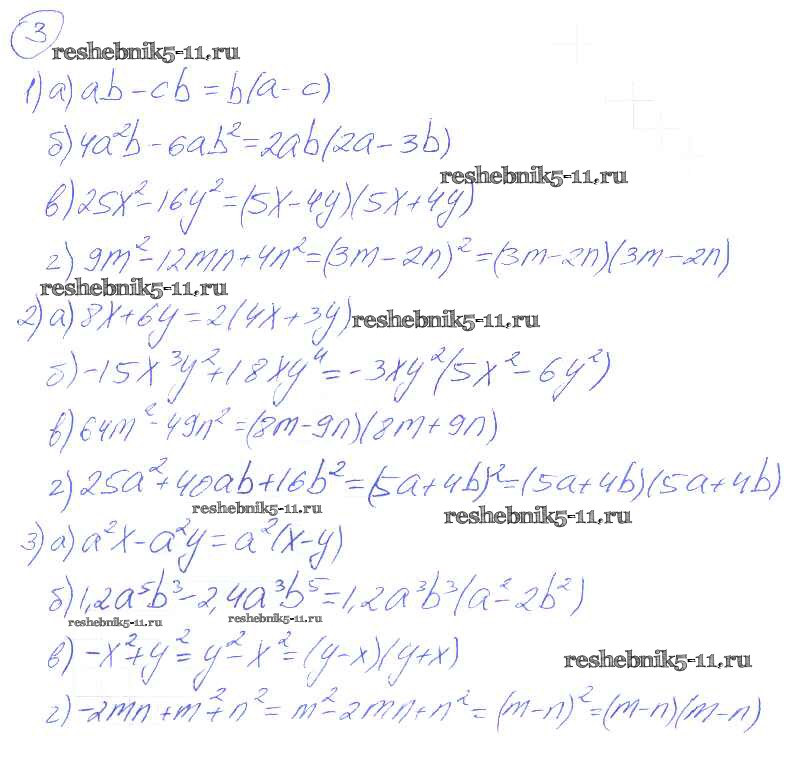 3
reshebnik5-11.ru
1) а) ab - cb = b(a - c)
б) 4a²b - 6ab² = 2ab(2a - 3b)
reshebnik5-11.ru
в) 25x² - 16y² = (5x - 4y)(5x + 4y)
г) 9m² - 12mn + 4n² = (3m - 2n)² = (3m - 2n)(3m - 2n)
reshebnik5-11.ru
2) а) 8x + 6y = 2(4x + 3y)
reshebnik5-11.ru
б) -15x³y² + 18xy⁴ = -3xy²(5x² - 6y²)
в) 64m² - 49n² = (8m - 9n)(8m + 9n)
г) 25a² + 40ab + 16b² = (5a + 4b)² = (5a + 4b)(5a + 4b)
reshebnik5-11.ru
reshebnik5-11.ru
3) а) a²x - a²y = a²(x - y)
б) 1,2a⁵b³ - 2,4a³b⁵ = 1,2a³b³(a² - 2b²)
reshebnik5-11.ru
reshebnik5-11.ru
в) -x² + y² = y² - x² = (y - x)(y + x)
reshebnik5-11.ru
г) -2mn + m² + n² = m² - 2mn + n² = (m - n)² = (m - n)(m - n)